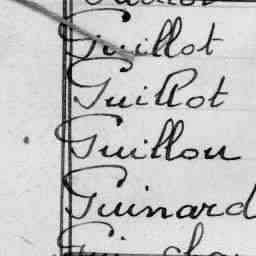 Guillot
Guillot
Guillou
Guinard